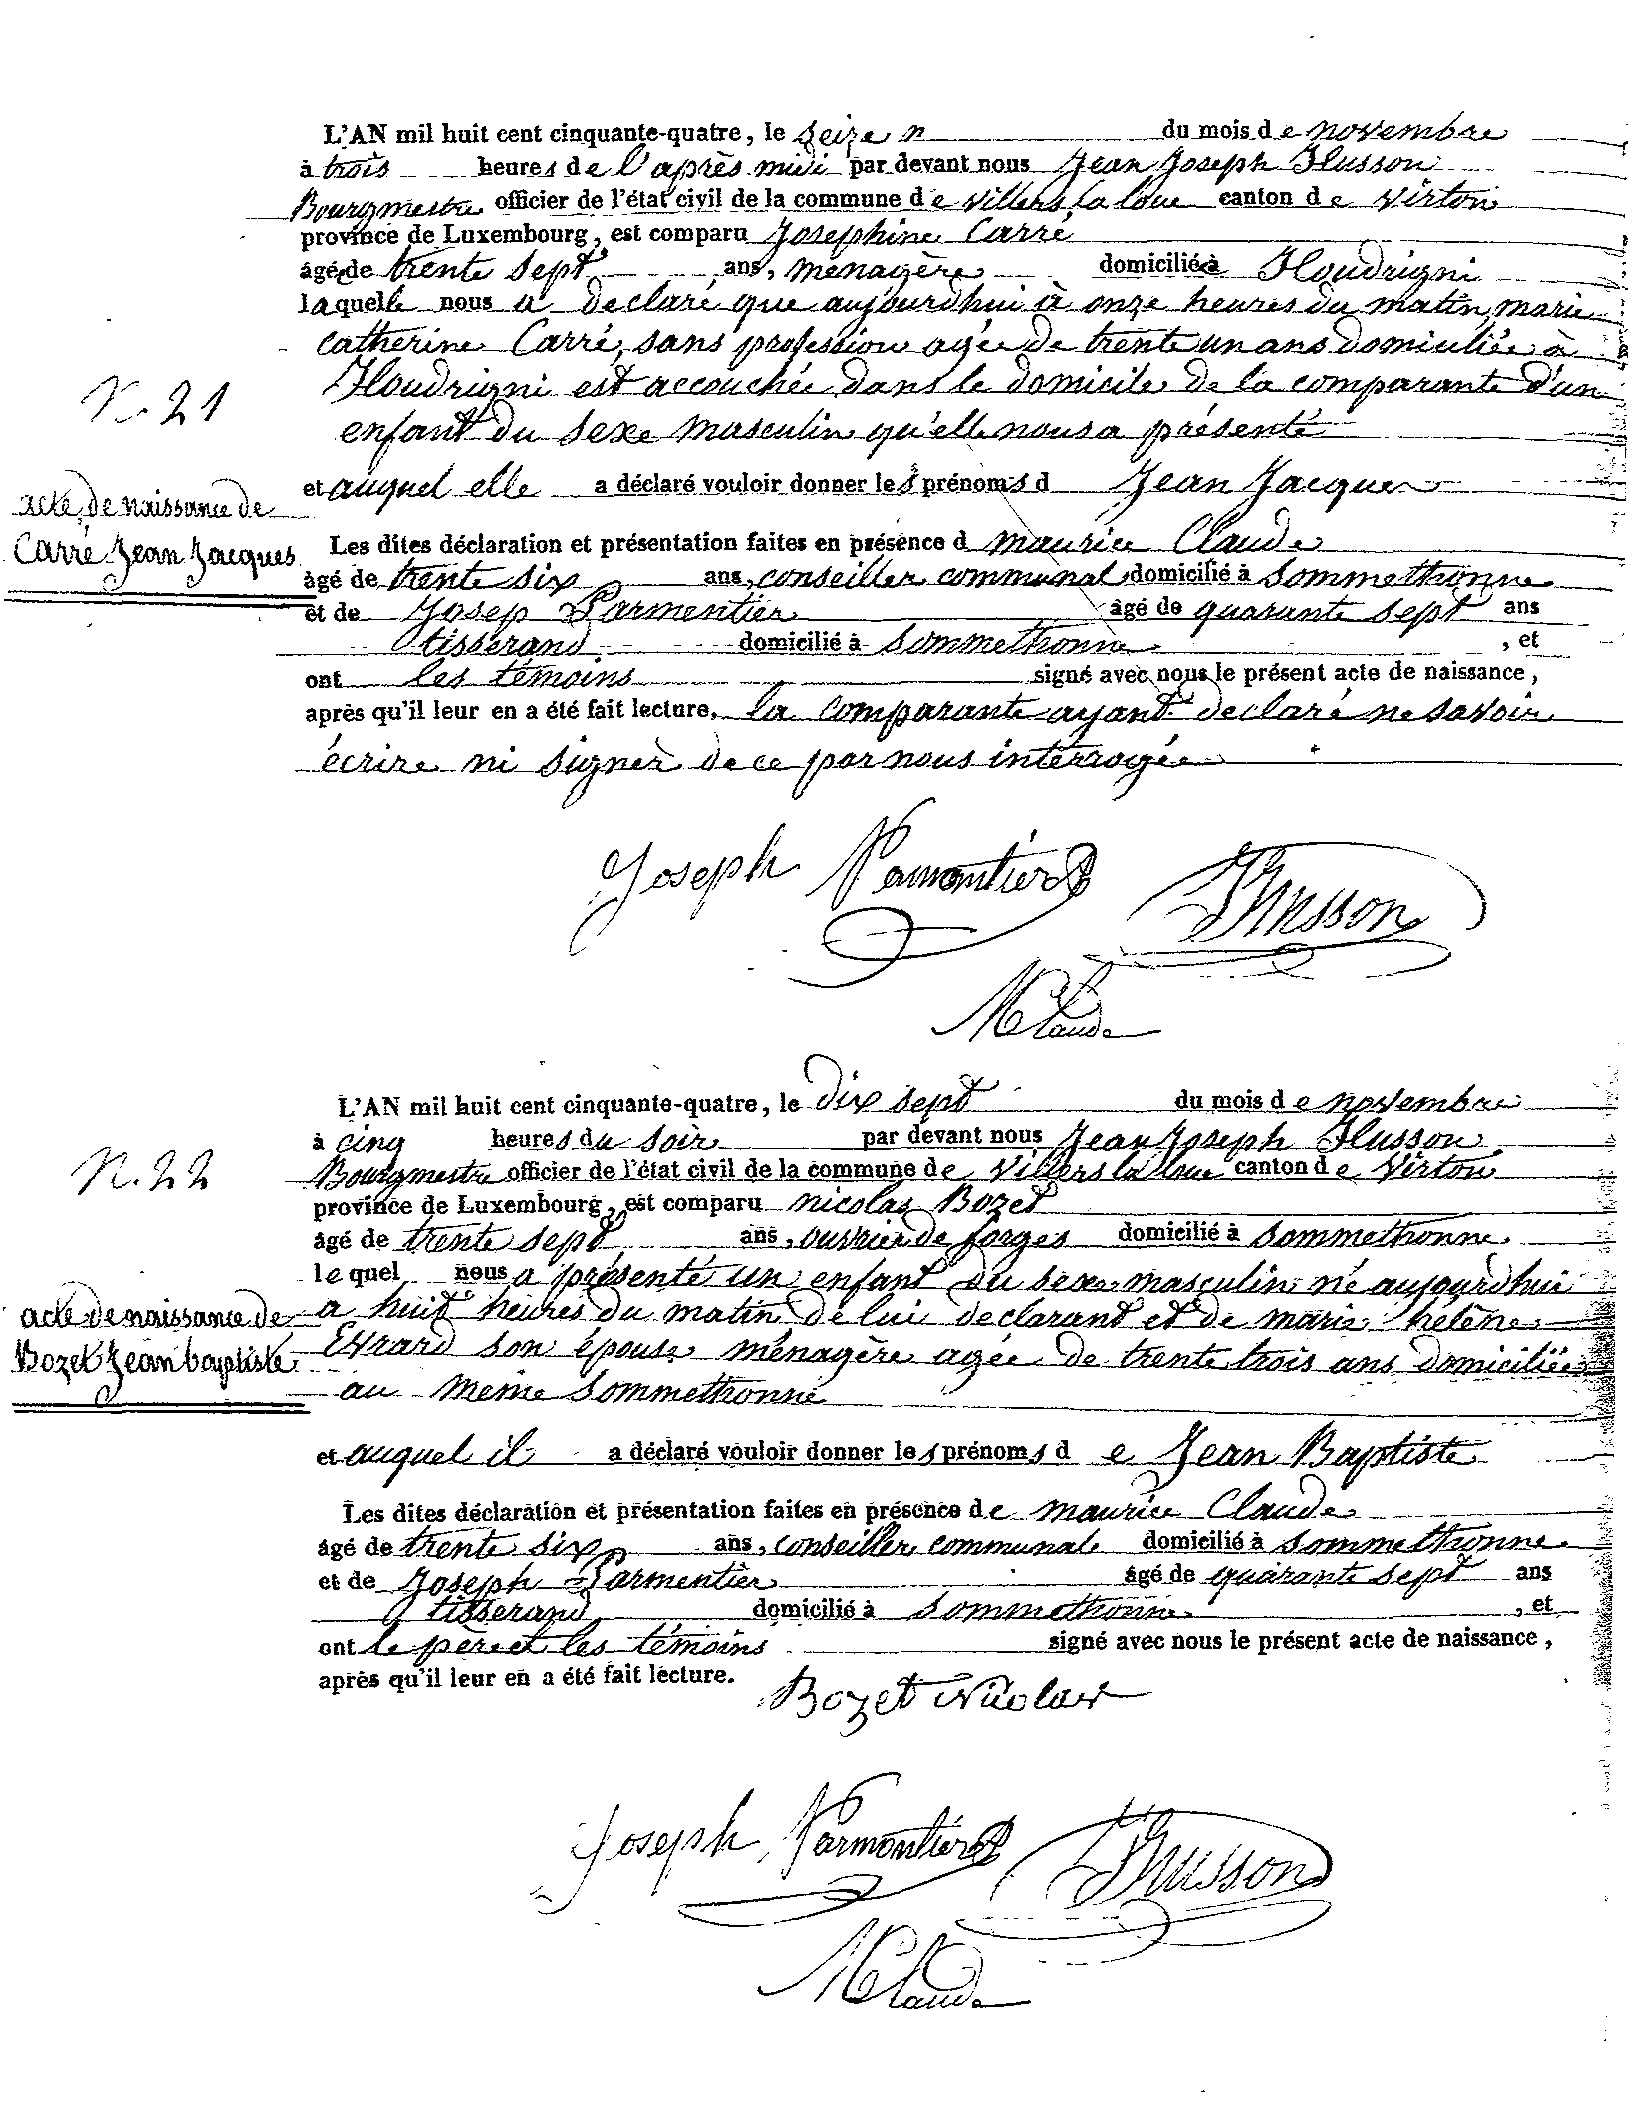 L'AN mil huit cent cinquante-quatre, le Seize n du mois de novembre
à trois heures de l'après midi par devant nous Jean Joseph Husson
Bourgmestre officier de l'état civil de la commune de Villers la loue canton de Virton
province de Luxembourg, est comparu Josephine Carré
âgée de trente sept ans, ménagère domiciliée à Houdrigni
laquelle nous a declaré que aujourdhui à onze heures du matin, marie
catherine Carré, sans profession agée de trente un ans domiciliée à
Houdrigni est accouchée dans le domicile de la comparante d'un
N. 21
enfant du sexe masculin qu'elle nous a présenté
et auquel elle a déclaré vouloir donner les prénoms d Jean Jacques
acte de naissance de
Carré Jean Jacques
Les dites déclaration et présentation faites en présence d maurice Claude
âgé de trente six ans, conseiller communal domicilié à Sommethonne
et de Josep Parmentier âgé de quarante sept ans
tisserand domicilié à Sommethonne , et
ont les témoins signé avec nous le présent acte de naissance,
après qu'il leur en a été fait lecture. la comparante ayant declaré ne savoir
écrire ni signer de ce par nous interrogée
Joseph Parmentier Husson
M Claude
L'AN mil huit cent cinquante-quatre, le dix sept du mois de novembre
à cinq heures du soir par devant nous Jean Joseph Husson
N. 22
Bourgmestre officier de l'état civil de la commune de Villers la loue canton de Virton
province de Luxembourg, est comparu nicolas Bozet
âgé de trente sept ans, ouvrier de forges domicilié à Sommethonne
lequel nous a présenté un enfant du sexe masculin né aujourdhui
acte de naissance de
a huit heures du matin de lui declarant et de marie hélène
Bozet Jean baptiste
Evrard son épouse ménagère agée de trente trois ans domiciliée
au meme Sommethonne
et auquel il a déclaré vouloir donner les prénoms de Jean Baptiste
Les dites déclaration et présentation faites en présence de maurice Claude
âgé de trente six ans, conseiller communal domicilié à Sommethonne
et de Joseph Parmentier âgé de quarante sept ans
tisserand domicilié à Sommethonne , et
ont le père et les témoins signé avec nous le présent acte de naissance,
après qu'il leur en a été fait lecture.
Bozet Nicolas
Joseph Parmentier Husson
M Claude